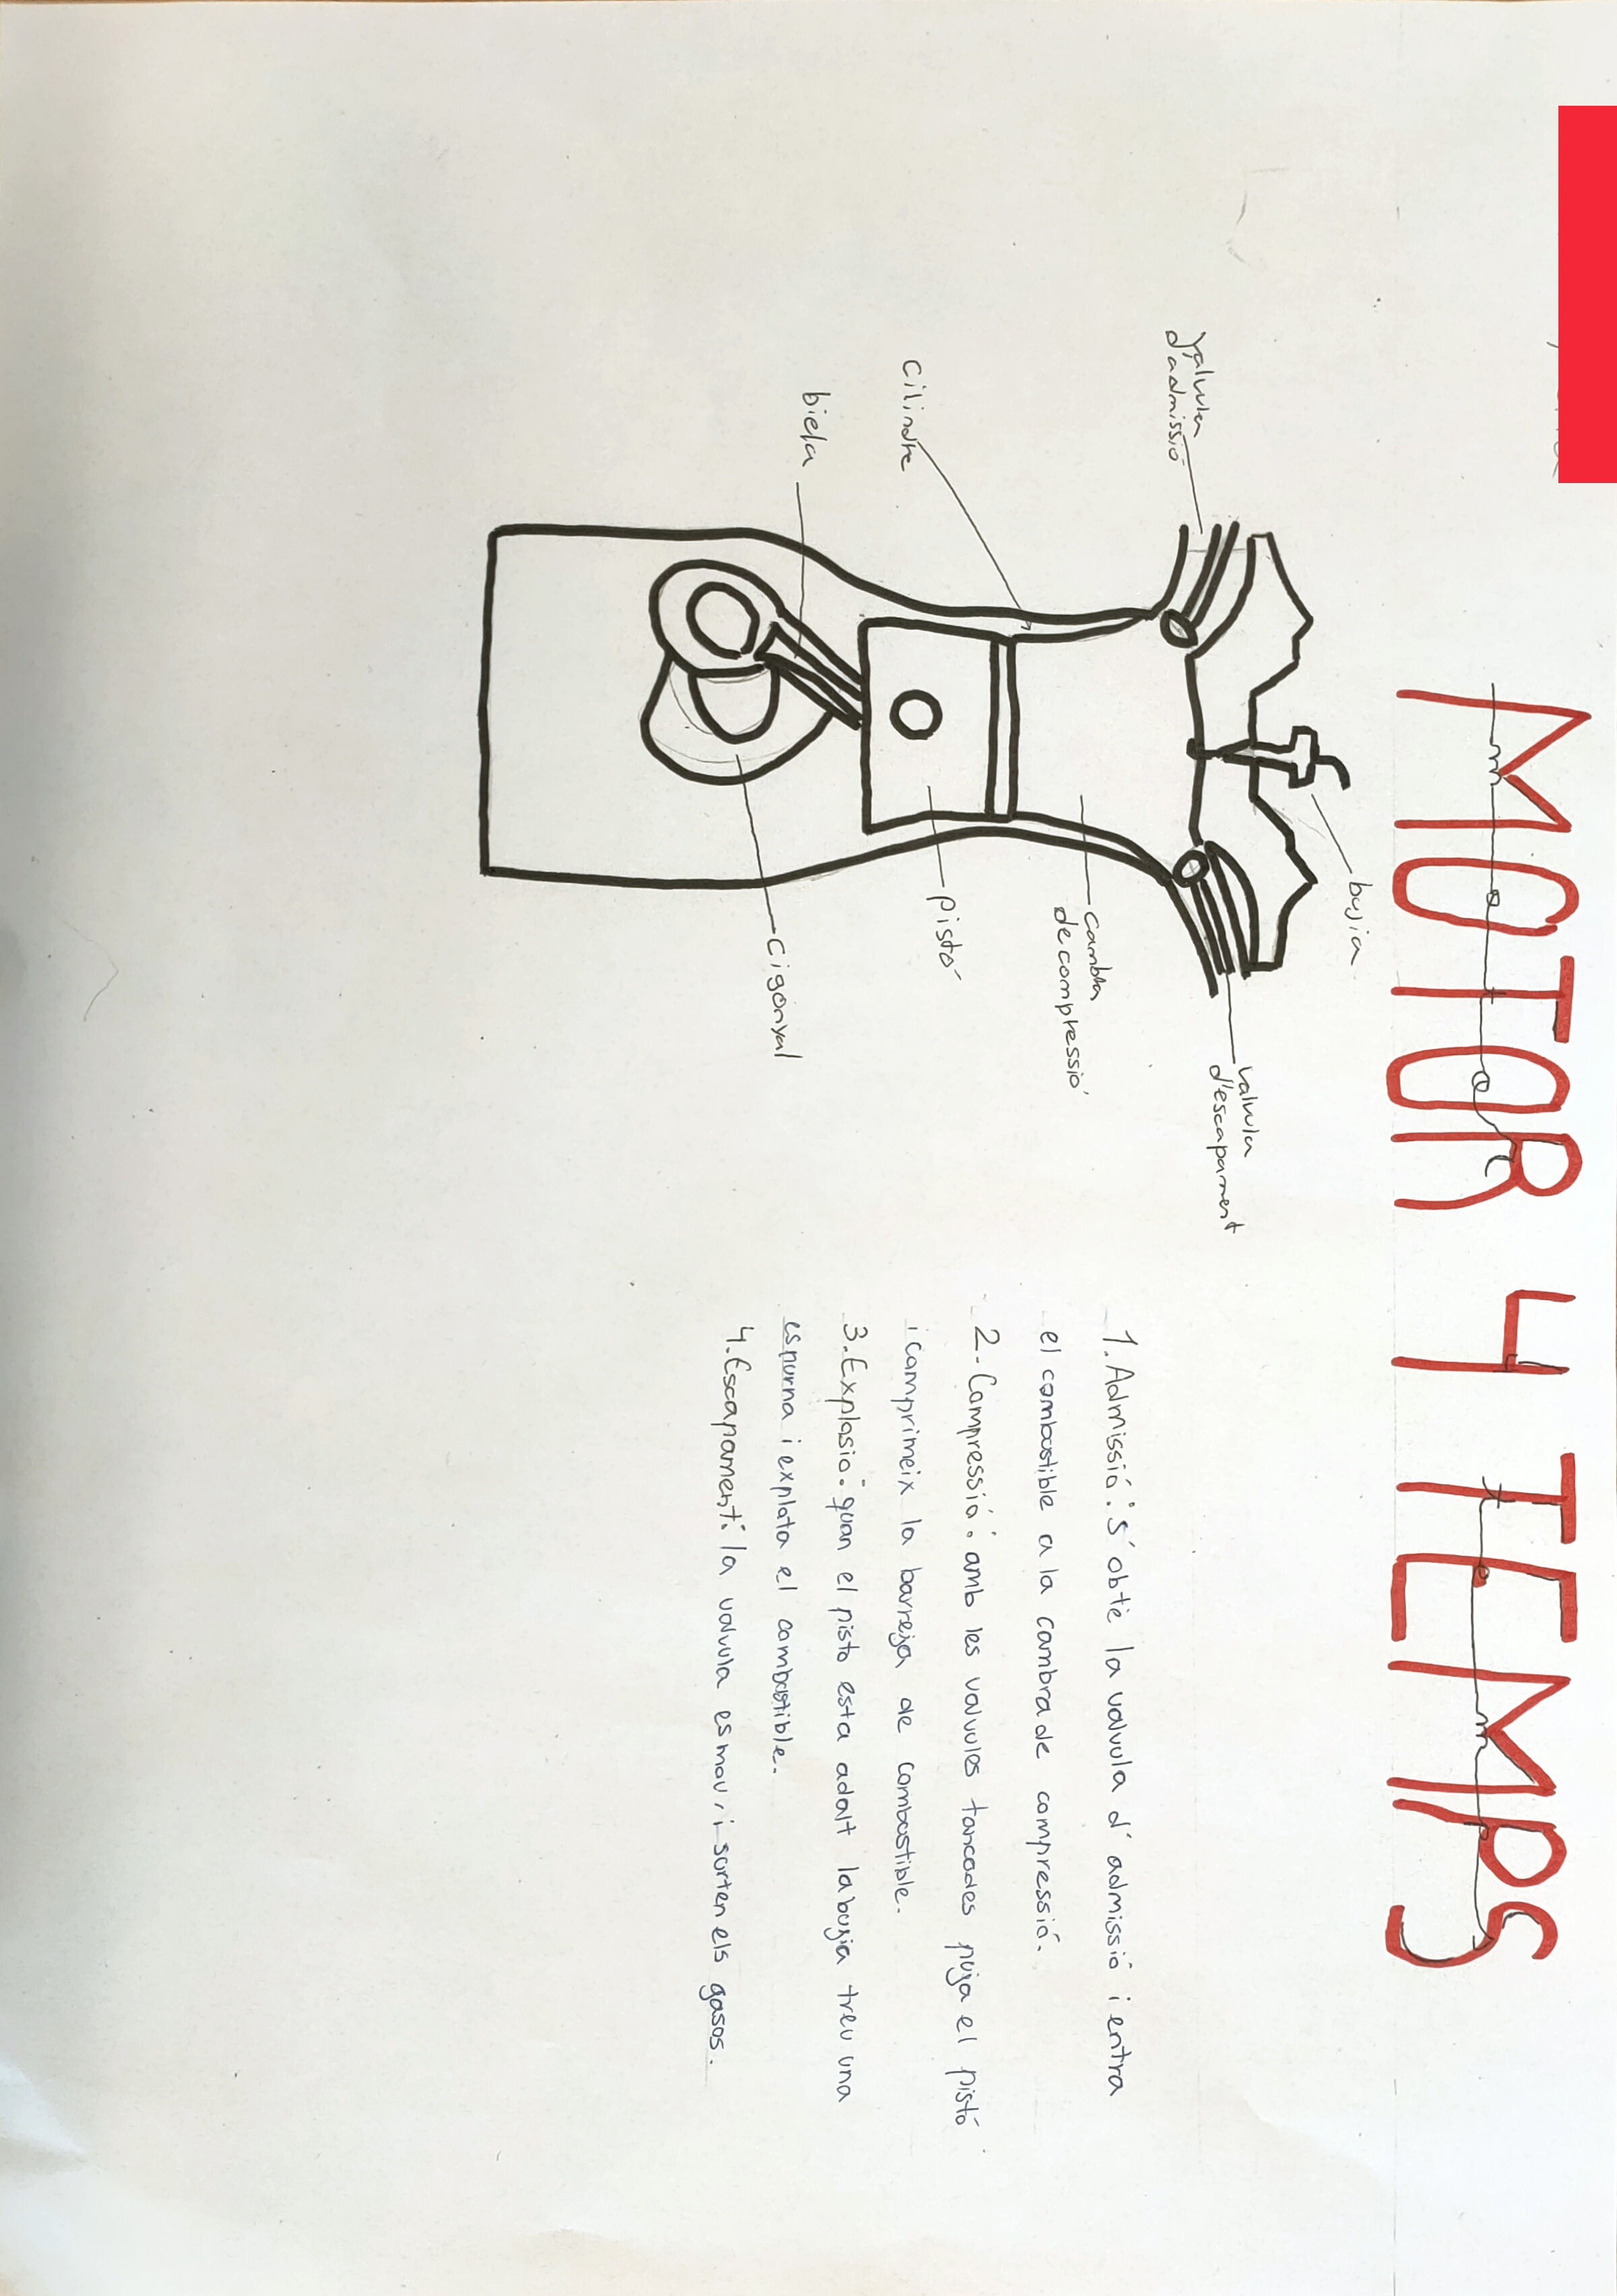 MOTOR 4 TEMPS
motor 4 temps
bujia
valvula
d'admissió
valvula
d'escapament
cilindre
cambra
de compressió
biela
pistó
cigonyal
1. Admissió: s'obte la valvula d'admissió i entra
el combustible a la cambra de compressió.
2. Compressió: amb les valvules tancades puja el pistó
i comprimeix la barreja de combustible.
3. Explosio: quan el pisto esta adalt la bujia treu una
espurna i explota el combustible.
4. Escapament: la valvula es mou i sorten els gasos.